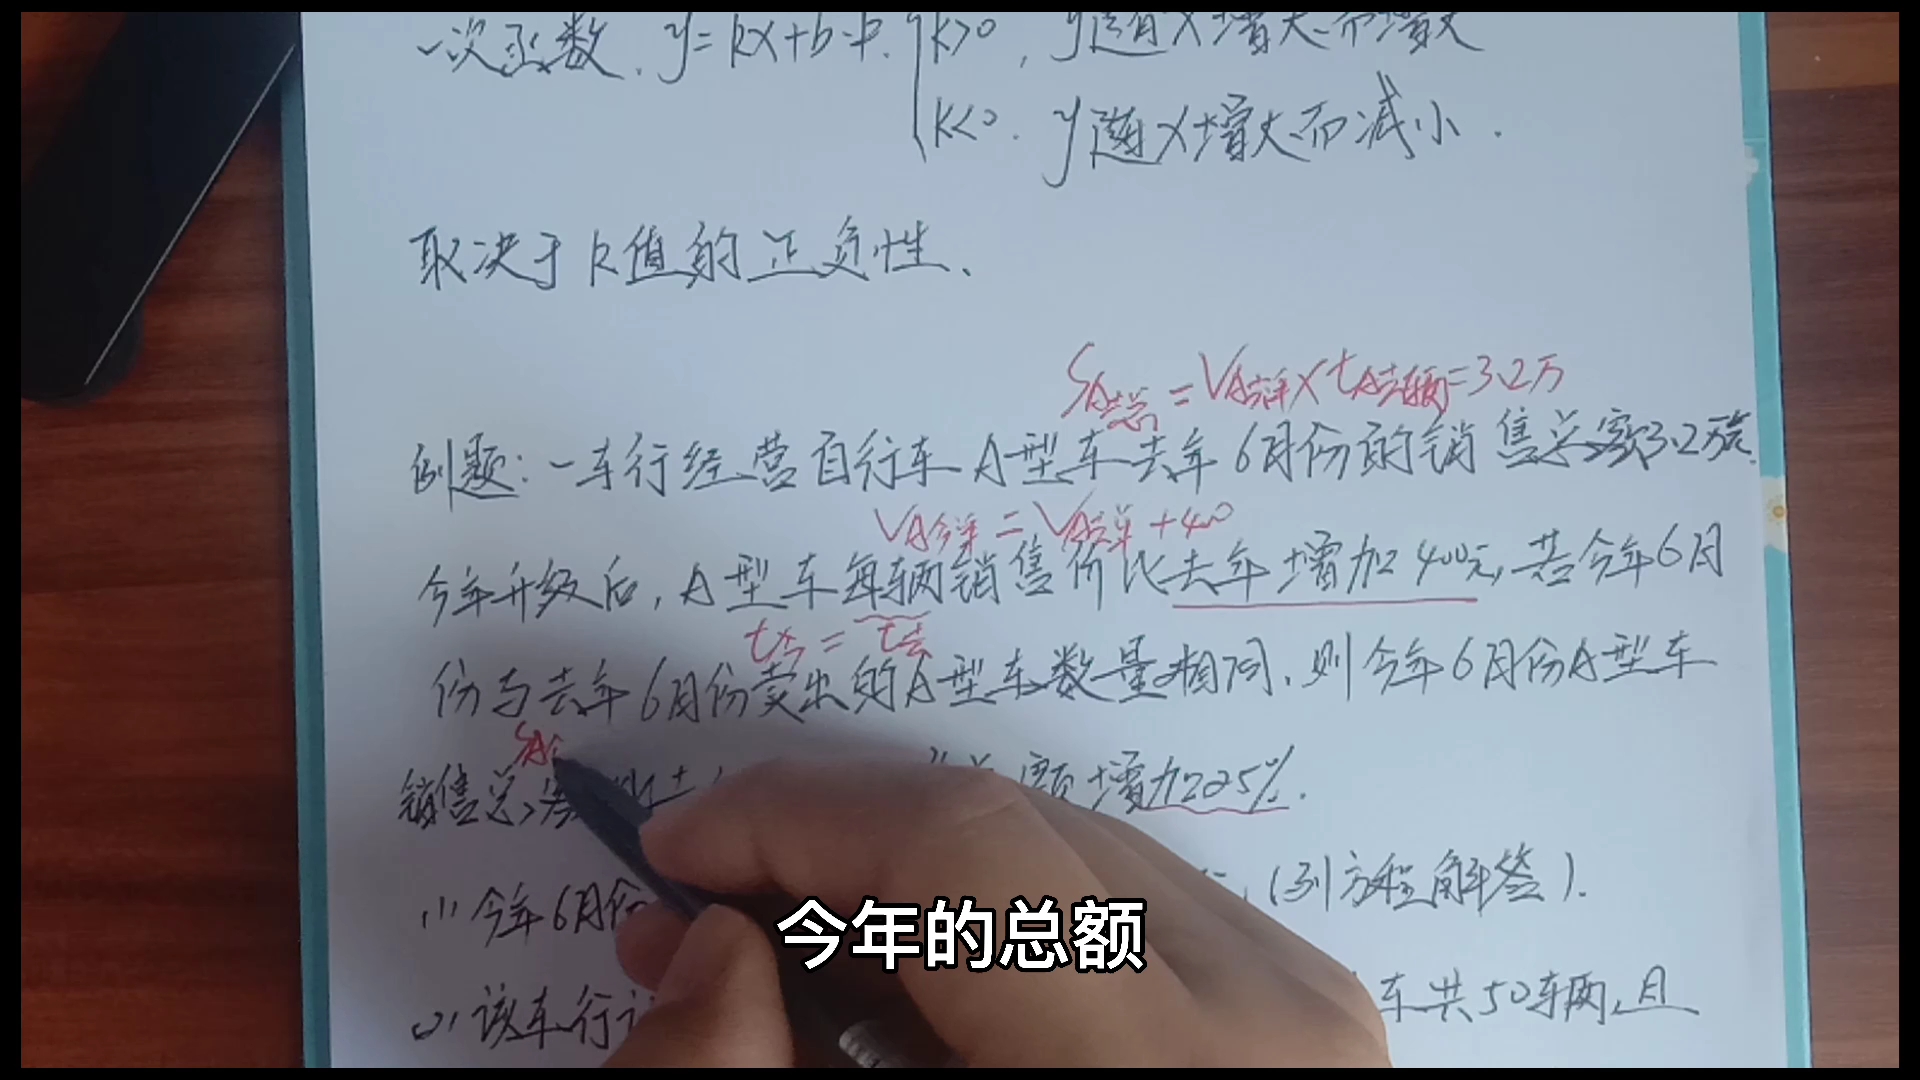 一次函数, y=kx+b中. k>0, y随x增大而增大
k<0. y随x增大而减小.
取决于k值的正负性.
SA去总=VA去年×tA去辆=3.2万
例题: 一车行经营自行车A型车去年6月份的销售总额3.2万元.
VA今年=VA去年+400
今年升级后, A型车每辆销售价比去年增加400元, 若今年6月
t今=t去
份与去年6月份卖出的A型车数量相同, 则今年6月份A型车
SA
销售总额 额增加25%.
(1) 今年6月份 (列方程解答).
(2) 该车行 车共50车辆, 且
今年的总额